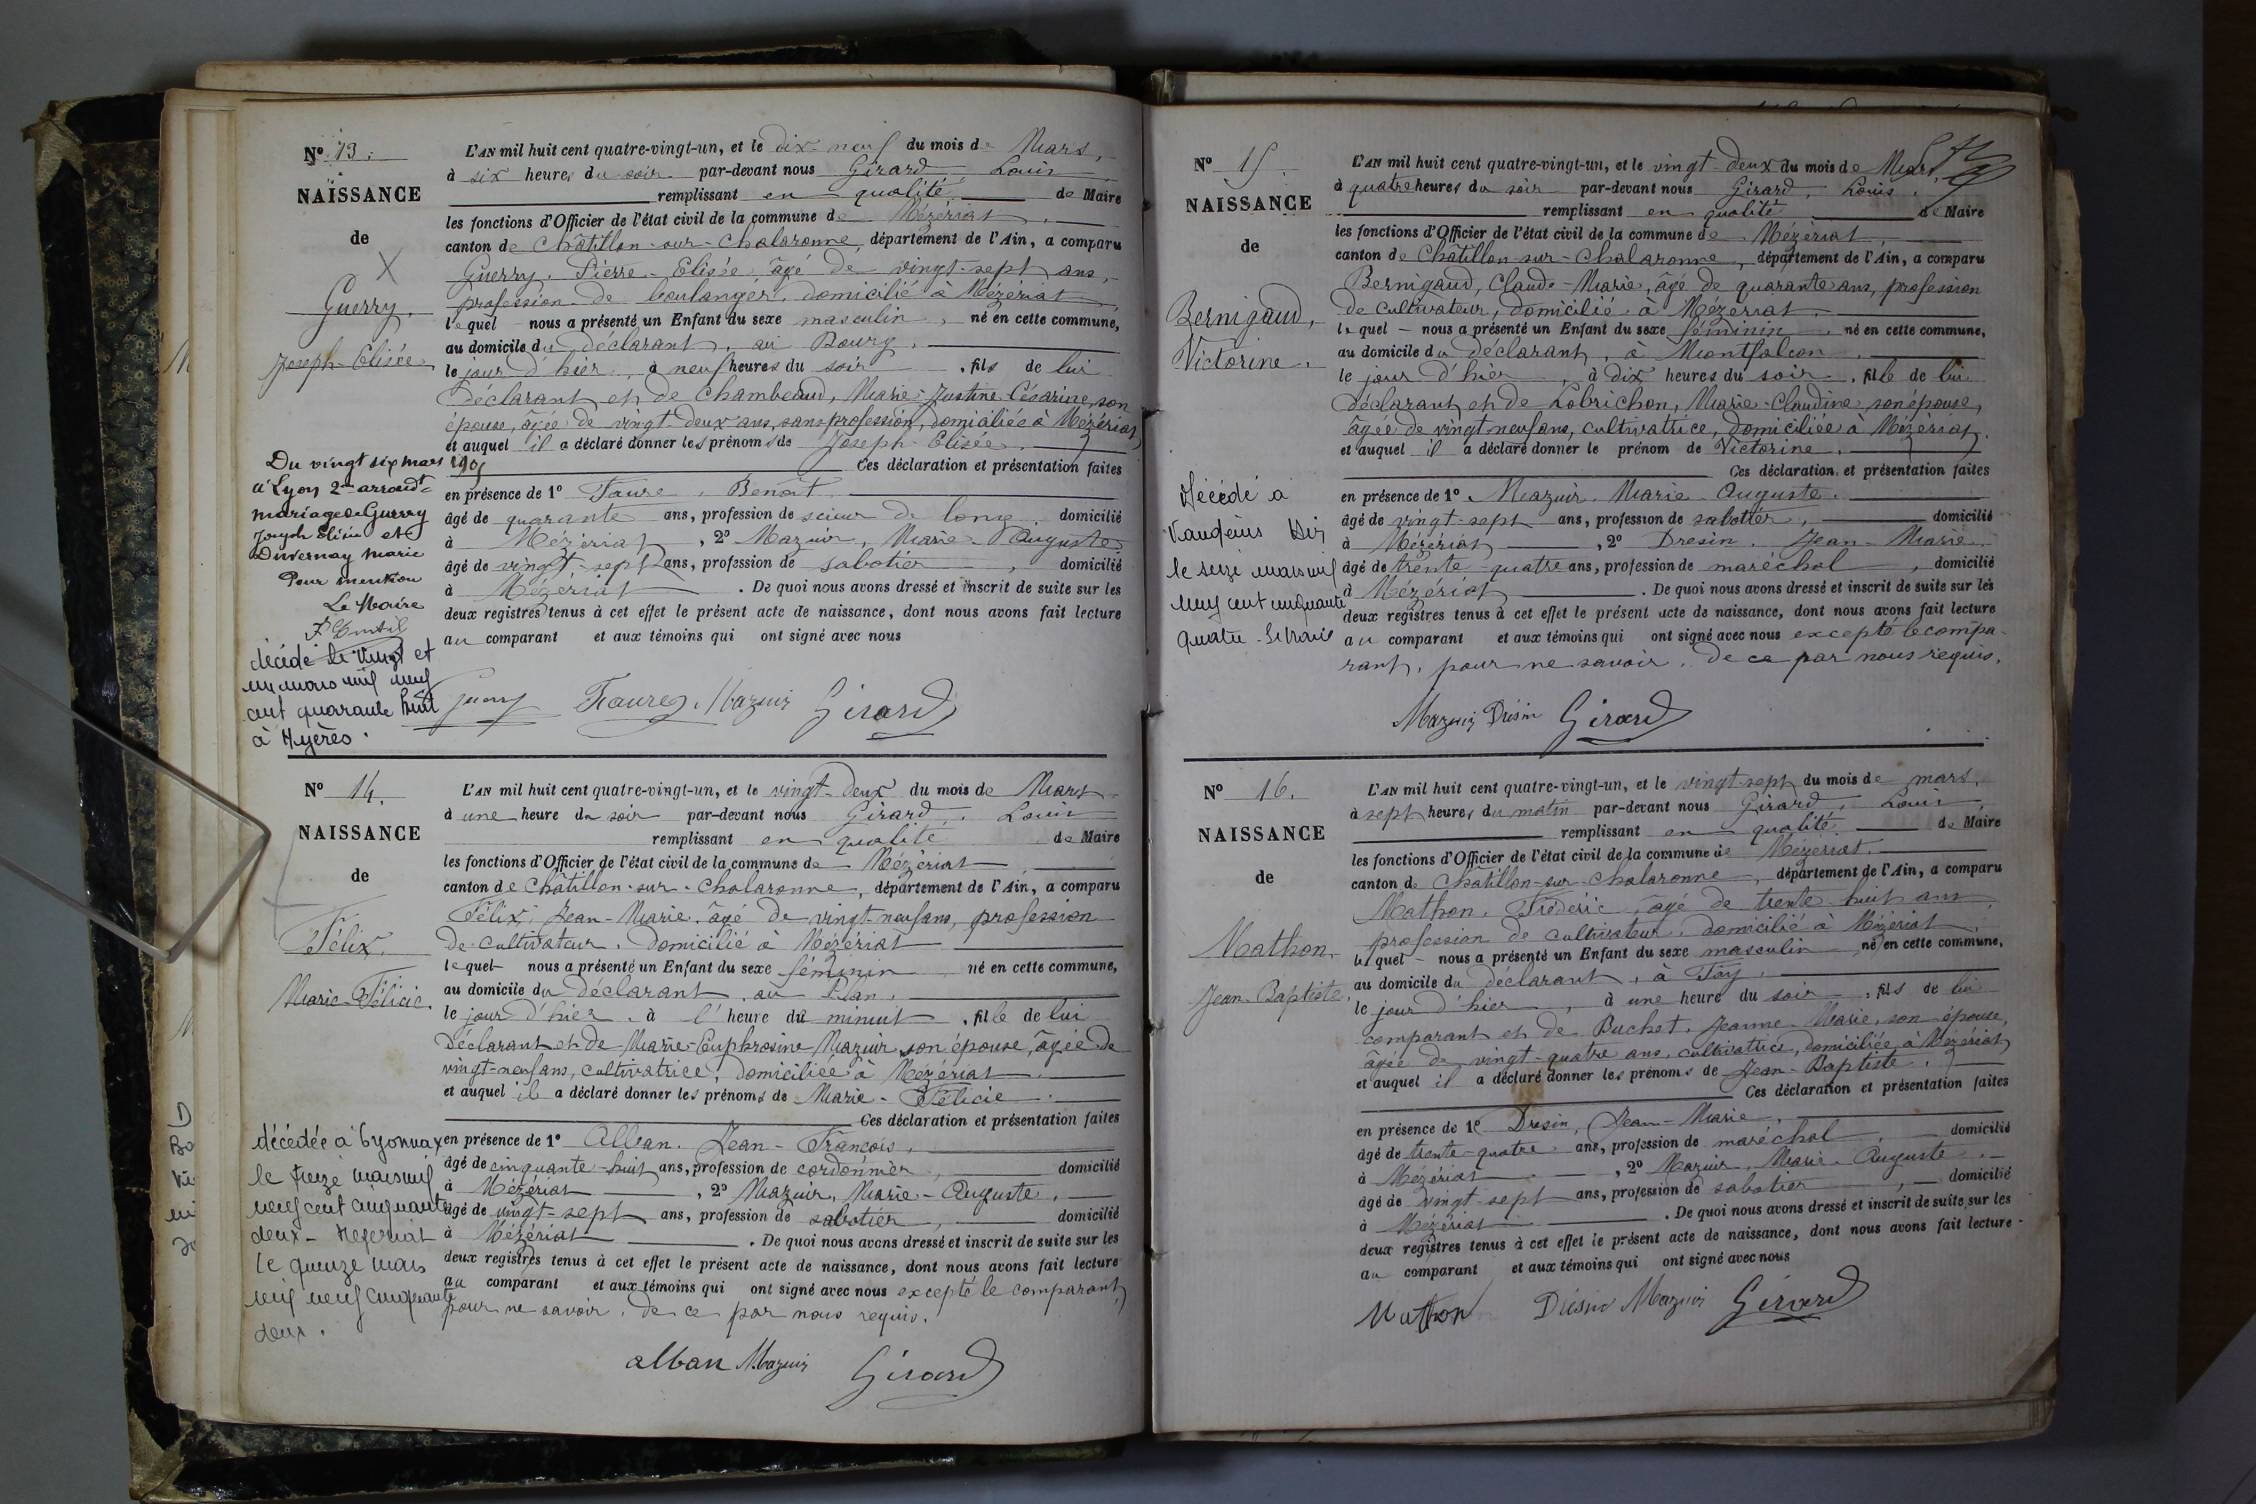 N° 13.
NAISSANCE
de
Guerry,
Joseph-Elisée.
L'AN mil huit cent quatre-vingt-un, et le dix-neuf du mois de Mars,
à six heures du soir par-devant nous Girard, Louis
remplissant en qualité de Maire
les fonctions d'Officier de l'état civil de la commune de Mézériat,
canton de Châtillon-sur-Chalaronne, département de l'Ain, a comparu
Guerry, Pierre-Elisée, âgé de vingt-sept ans,
profession de boulanger, domicilié à Mézériat,
lequel nous a présenté un Enfant du sexe masculin, né en cette commune,
au domicile du déclarant, au Bourg,
le jour d'hier, à neuf heures du soir, fils de lui
déclarant et de Chambeaud, Marie-Justine-Césarine, son
épouse, âgée de vingt-deux ans, sans profession, domiciliée à Mézériat,
et auquel il a déclaré donner les prénoms de Joseph-Elisée.
Ces déclaration et présentation faites
en présence de 1° Faure, Benoît
âgé de quarante ans, profession de scieur de long, domicilié
à Mézériat, 2° Mazuir, Marie-Auguste
âgé de vingt-sept ans, profession de sabotier, domicilié
à Mézériat. De quoi nous avons dressé et inscrit de suite sur les
deux registres tenus à cet effet le présent acte de naissance, dont nous avons fait lecture
au comparant et aux témoins qui ont signé avec nous
Guerry Faure Mazuir Girard
Du vingt six mars
à Lyon 2me arrondt
mariage de Guerry
Joseph Elisée et
Duvernay Marie
Pour mention
Le Maire
décédé le vingt et
un mars mil neuf
cent quarante huit
à Hyères.
N° 14.
NAISSANCE
de
Félix,
Marie-Félicie.
L'AN mil huit cent quatre-vingt-un, et le vingt-deux du mois de Mars
à une heure du soir par-devant nous Girard, Louis
remplissant en qualité de Maire
les fonctions d'Officier de l'état civil de la commune de Mézériat,
canton de Châtillon-sur-Chalaronne, département de l'Ain, a comparu
Félix, Jean-Marie, âgé de vingt-neuf ans, profession
de cultivateur, domicilié à Mézériat
lequel nous a présenté un Enfant du sexe féminin né en cette commune,
au domicile du déclarant, au Plan,
le jour d'hier, à l'heure du minuit, fille de lui
déclarant et de Marie-Euphrosine Mazuir, son épouse, âgée de
vingt-neuf ans, cultivatrice, domiciliée à Mézériat
et auquel il a déclaré donner les prénoms de Marie-Félicie.
Ces déclaration et présentation faites
en présence de 1° Alban, Jean-François,
âgé de cinquante-huit ans, profession de cordonnier, domicilié
à Mézériat, 2° Mazuir, Marie-Auguste,
âgé de vingt-sept ans, profession de sabotier, domicilié
à Mézériat. De quoi nous avons dressé et inscrit de suite sur les
deux registres tenus à cet effet le présent acte de naissance, dont nous avons fait lecture
au comparant et aux témoins qui ont signé avec nous excepté le comparant,
pour ne savoir, de ce par nous requis.
alban Mazuir Girard
décédée à Oyonnax
le treize mars mil
neuf cent cinquante
deux - Mézériat
le quinze mars
mil neuf cinquante
deux.
N° 15.
NAISSANCE
de
Bernigaud,
Victorine.
L'AN mil huit cent quatre-vingt-un, et le vingt-deux du mois de Mars,
à quatre heures du soir par-devant nous Girard, Louis,
remplissant en qualité de Maire
les fonctions d'Officier de l'état civil de la commune de Mézériat,
canton de Châtillon-sur-Chalaronne, département de l'Ain, a comparu
Bernigaud, Claude-Marie, âgé de quarante ans, profession
de cultivateur, domicilié à Mézériat,
lequel nous a présenté un Enfant du sexe féminin né en cette commune,
au domicile du déclarant, à Montfalcon,
le jour d'hier, à dix heures du soir, fille de lui
déclarant et de Lobrichon, Marie-Claudine son épouse,
âgée de vingt-neuf ans, cultivatrice, domiciliée à Mézériat,
et auquel il a déclaré donner le prénom de Victorine.
Ces déclaration et présentation faites
en présence de 1° Mazuir, Marie-Auguste,
âgé de vingt-sept ans, profession de sabotier, domicilié
à Mézériat, 2° Dresin, Jean-Marie
âgé de trente-quatre ans, profession de maréchal, domicilié
à Mézériat. De quoi nous avons dressé et inscrit de suite sur les
deux registres tenus à cet effet le présent acte de naissance, dont nous avons fait lecture
au comparant et aux témoins qui ont signé avec nous excepté le compa-
rant, pour ne savoir, de ce par nous requis.
Mazuir Drésin Girard
Décédé à
le seize mars mil
neuf cent cinquante
quatre
N° 16.
NAISSANCE
de
Mathon,
Jean-Baptiste.
L'AN mil huit cent quatre-vingt-un, et le vingt-sept du mois de mars,
à sept heures du matin par-devant nous Girard, Louis,
remplissant en qualité de Maire
les fonctions d'Officier de l'état civil de la commune de Mézériat,
canton de Châtillon-sur-Chalaronne, département de l'Ain, a comparu
Mathon, Fréderic, âgé de trente-huit ans,
profession de cultivateur, domicilié à Mézériat,
lequel nous a présenté un Enfant du sexe masculin né en cette commune,
au domicile du déclarant, à Fay,
le jour d'hier, à une heure du soir, fils de lui
comparant et de Buchet, Jeanne-Marie, son épouse,
âgée de vingt-quatre ans, cultivatrice, domiciliée à Mézériat,
et auquel il a déclaré donner les prénoms de Jean-Baptiste.
Ces déclaration et présentation faites
en présence de 1° Dresin, Jean-Marie,
âgé de trente-quatre ans, profession de maréchal, domicilié
à Mézériat, 2° Mazuir, Marie-Auguste
âgé de vingt-sept ans, profession de sabotier, domicilié
à Mézériat. De quoi nous avons dressé et inscrit de suite sur les
deux registres tenus à cet effet le présent acte de naissance, dont nous avons fait lecture
au comparant et aux témoins qui ont signé avec nous
Mathon Drésin Mazuir Girard